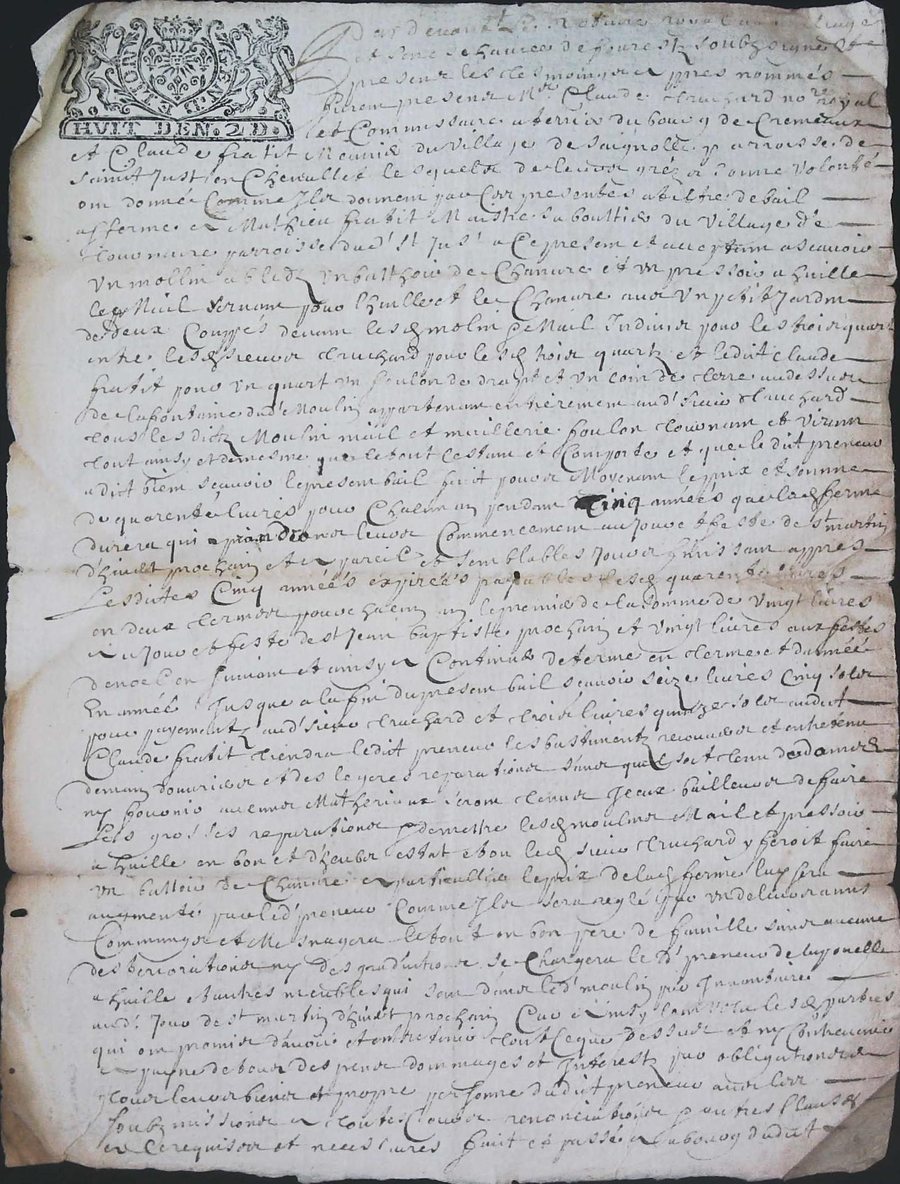 GENER LION
HVIT DEN. 2 D.
Par devant Le notaire royal
et seneschaucee de fourestz soubzsigné
presens les tesmoingz appres nommés
furent presens Mre Claude Truchard nore royal
et Commissaire a terrier du bourg de Cremeaux
et Claude fratit Meunier du village de saignolle parroisse de
saint Just en Chevallet lesquelz de leur gréz et bonne volonté
ont donné Comme Ilz donnent par Ces presentes a tiltre de bail
afferme a Mathieu fratit Maistre sabouttier du village de
parroisse dud' st Just a Ce present et acceptant ascavoir
un mollin a bled un batthoir de Chanvre et un pressoir a huille
le Mail servant pour l'huille et le Chanvre avec un petit Jardin
de deux Couppes devant lesd molin et Mail Indivis pour les trois quart
entre led sieur Truchard pour lesd trois quartz et ledit Claude
fratit pour un quart un foulon de drapt et un coin de terre audessus
de la fontaine dud' Moulin appartenant entierement aud' sieur Truchard
tous lesditz Moulin mail et maillerie foulon tournant et virant
tout ainsy et de mesme que le tout s'estant et Comporte et que ledit preneur
a dict bien scavoir le present bail fait pour et Moyenant le prix et somme
de quarente livres pour Chacun an pendant Cinq années que lad ferme
durera qui prandront leur Commencement au Jour et feste de st martin
d'hivert prochain et a pareil et semblables Jour finissant appres
Lesdittes Cinq années expirées payables lesd quarente livres
en deux termes pour chacun an le premier de la somme de vingt livres
au Jour et feste de st Jean baptiste prochain et vingt livres aux festes
de noel en suivant et ainsy a Continuer de terme en terme et d'année
En année Jusque a la fin du present bail scavoir seize livres Cinq solz
pour payement aud' sieur Truchard et trois livres quinze solz audit
Claude fratit tiendra ledit preneur les bastimentz recouverz et entretenu
de main d'ouvrier et des legeres reparations sans quil soit tenu
ny fournir aucuns Matheriaux seront tenus Iceux bailleurs de faire
Les grosses reparations et demettre lesd moulins Mail et pressoir
a huille en bon et d'heubz estat et ou led sieur Truchard y feroit faire
un battoir de Chanvre en particullier le prix de lad ferme luy sera
augmenté par led' preneur Comme Ilz sera reglé par un de leurs amis
Communs et Mesnagera le tout en bon pere de famille sans aucune
desteriorations ny desgraductions se Chargera le d' preneur de la pouelle
a huille et autres meubles qui sont dans led' moulin par Inventaire
aud' Jour de st martin d'hivert prochain Car Ainsy lesd parties
qui ont promis d'avoir et entretenir tout Ce que dessus et ny Contrevenir
a payne de tous despens dommages et Interestz par obligations
de tous leurs biens et propre personne dudit preneur avec les
soubzmissions a toutes Cours renonciations et autres Clauses
a Ce requises et necessaires fait et passé a bourg dudit